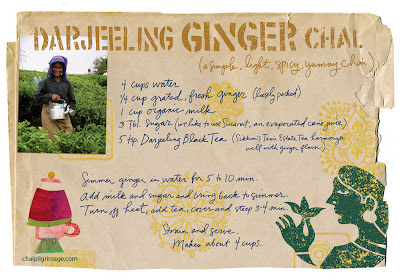 DARJEELING GINGER CHAI
(a simple, light, spicy, yummy chai)
4 cups water
1/4 cup grated, fresh ginger (loosely packed)
1 cup organic milk
3 Tbl. Sugar (we like to use Sucanat, an evaporated cane juice)
5 tsp. Darjeeling Black Tea (Sikkim's Temi Estate Tea harmonizes
well with ginger flavor)
Simmer ginger in water for 5 to 10 min.
Add milk and sugar and bring back to simmer.
Turn off heat, add tea, cover and steep 3-4 min.
Strain and serve.
Makes about 4 cups.
chaipilgrimage.com